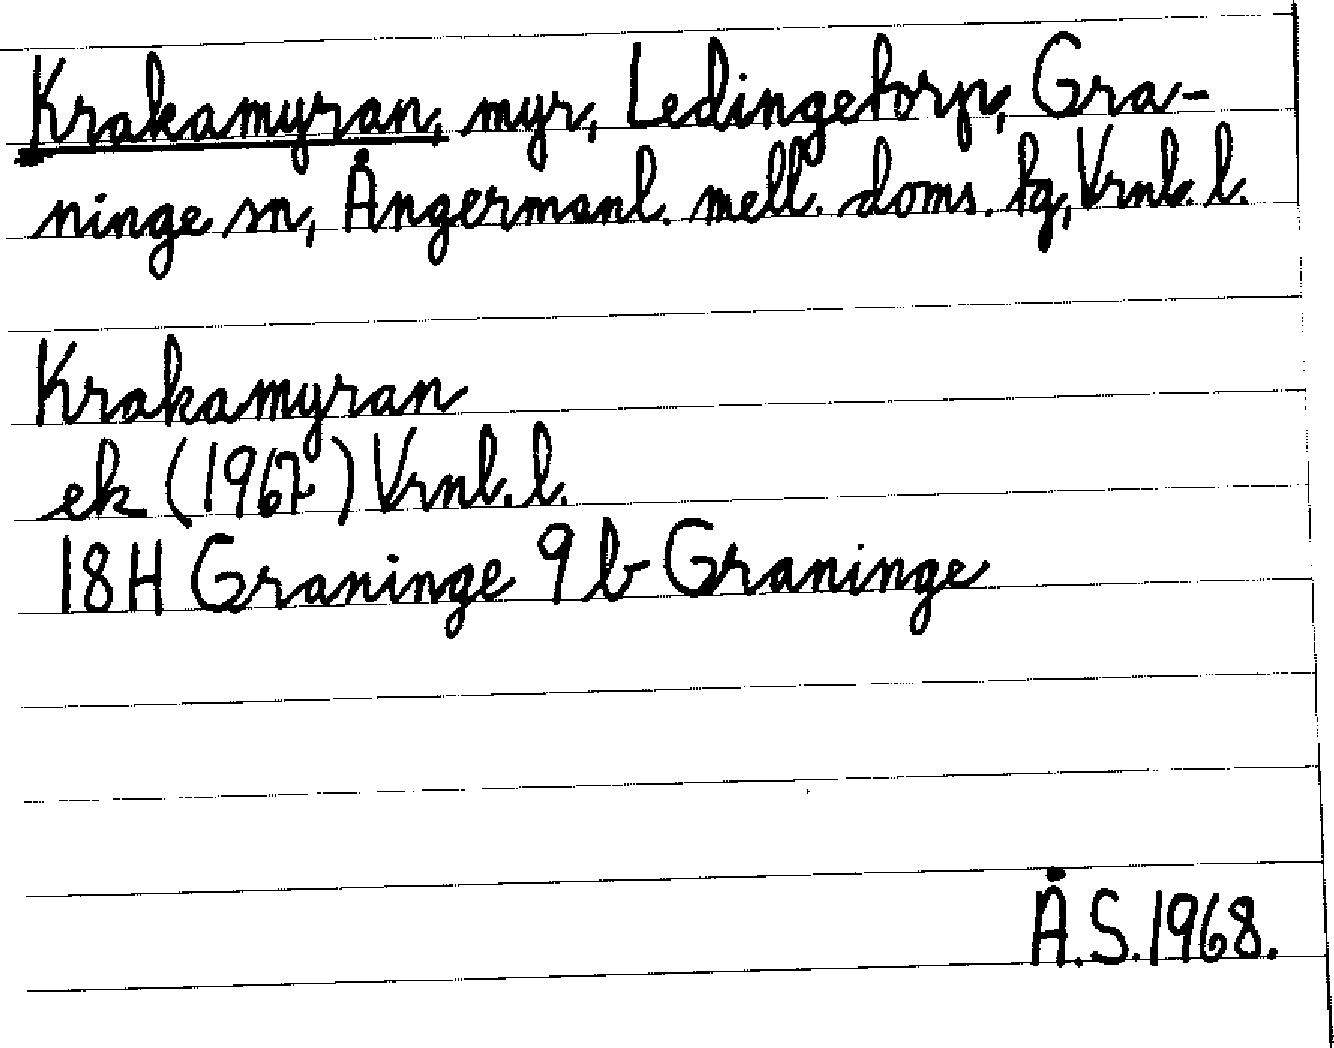 Krakamyran, myr, Ledingetorp, Gra-
ninge sn, Ångermanl. mell. doms. tg, Vrnl. l.
Krakamyran
ek (1967) Vrnl. l.
18H Graninge 9 b Graninge
Å.S. 1968.